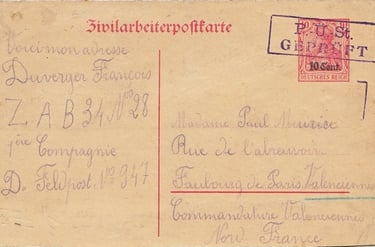 Zivilarbeiterpostkarte
P.U.St.
GEPRÜFT
10 Cent.
DEUTSCHES REICH
Voici mon adresse
Duverger Francois
Z A B 34 N° 28
1ère Compagnie
D. Feldpost. N° 947
Madame Paul Meurice
Rue de l'abreuvoir
Faubourg de Paris Valenciennes
Commandature Valenciennes
Nord France